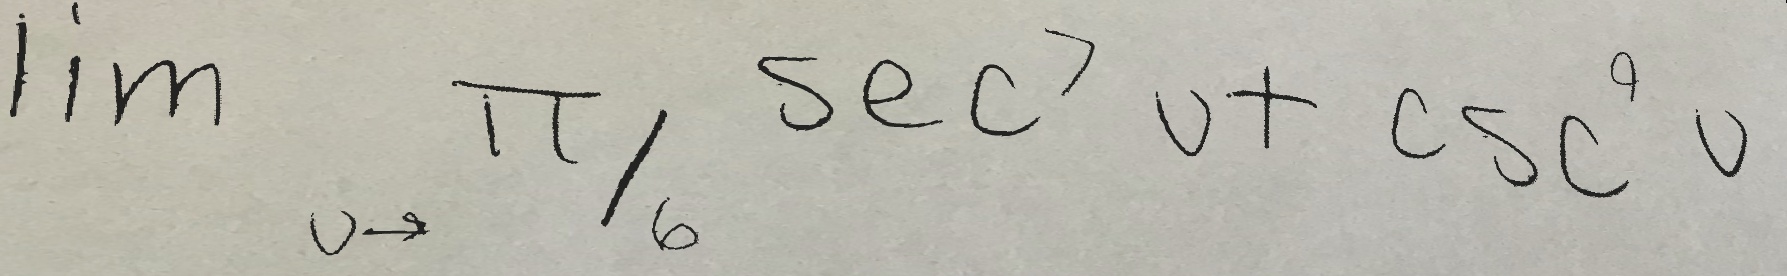 lim v→ π/6 sec^7 v + csc^9 v